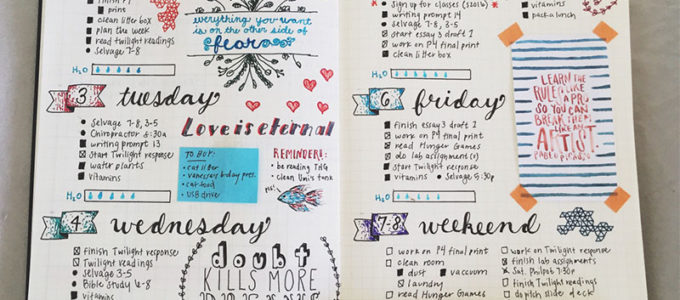 finish P1
print
clean litter box
plan the week
read twilight readings
Selvage 7-8
H2O
everything you want
is on the other side of
fear
3 tuesday
Selvage 7-8, 3-5
Chiropractor
writing prompt 13
start Twilight response
water plants
vitamins
H2O
Love is eternal
TO BUY:
cat litter
vanessa's bday pres.
cat food
USB drive
REMINDER!:
be reading THG
clean Uni's tank
pls!
4 wednesday
finish Twilight response
Twilight readings
Selvage 3-5
Bible Study 6-8
vitamins
doubt
KILLS MORE
sign up for classes (S2016)
writing prompt 14
Selvage 7-8, 3-5
start essay 3 draft 1
work on P4 final print
clean litter box
vitamins
pack a lunch
H2O
6 friday
finish essay 3 draft 1
work on P4 final print
read Hunger Games
do lab assignment(s)
start Twilight response
vitamins
Selvage 5:30p
H2O
LEARN THE
RULES LIKE
A PRO
SO YOU CAN
BREAK THEM
LIKE AN
ARTIST.
PABLO PICASSO
7-8 weekend
work on P4 final print
clean room
dust
vacuum
laundry
read Hunger Games
work on Twilight response
finish lab assignments
Sat. Philpot 7:30p
finish readings
do pitch slide deck